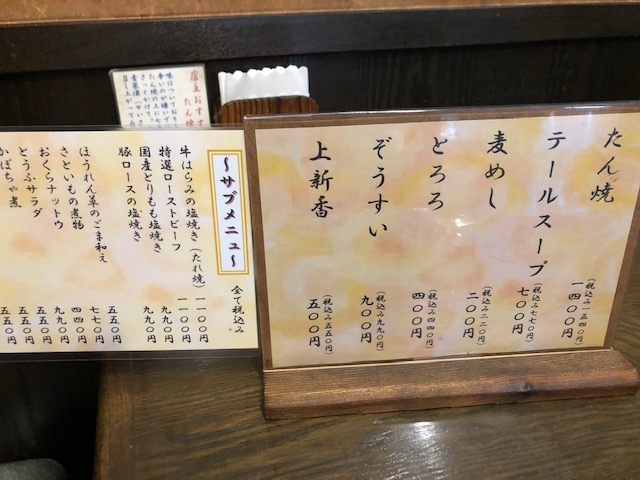 たん焼
(税込み一五四〇円)
一四〇〇円
テールスープ
(税込み七七〇円)
七〇〇円
麦めし
(税込み二二〇円)
二〇〇円
とろろ
(税込み四四〇円)
四〇〇円
ぞうすい
(税込み九九〇円)
九〇〇円
上新香
(税込み五五〇円)
五〇〇円
〜サブメニュー〜
全て税込み
牛はらみの塩焼き(たれ焼) 一一〇〇円
特選ローストビーフ 一一〇〇円
国産とりもも塩焼き 九九〇円
豚ロースの塩焼き 九九〇円
ほうれん草のごま和え 五五〇円
さといもの煮物 七七〇円
おくらナットウ 四四〇円
とうふサラダ 九九〇円
かぼちゃ煮 五五〇円
五五〇円
店主おすす
たん焼